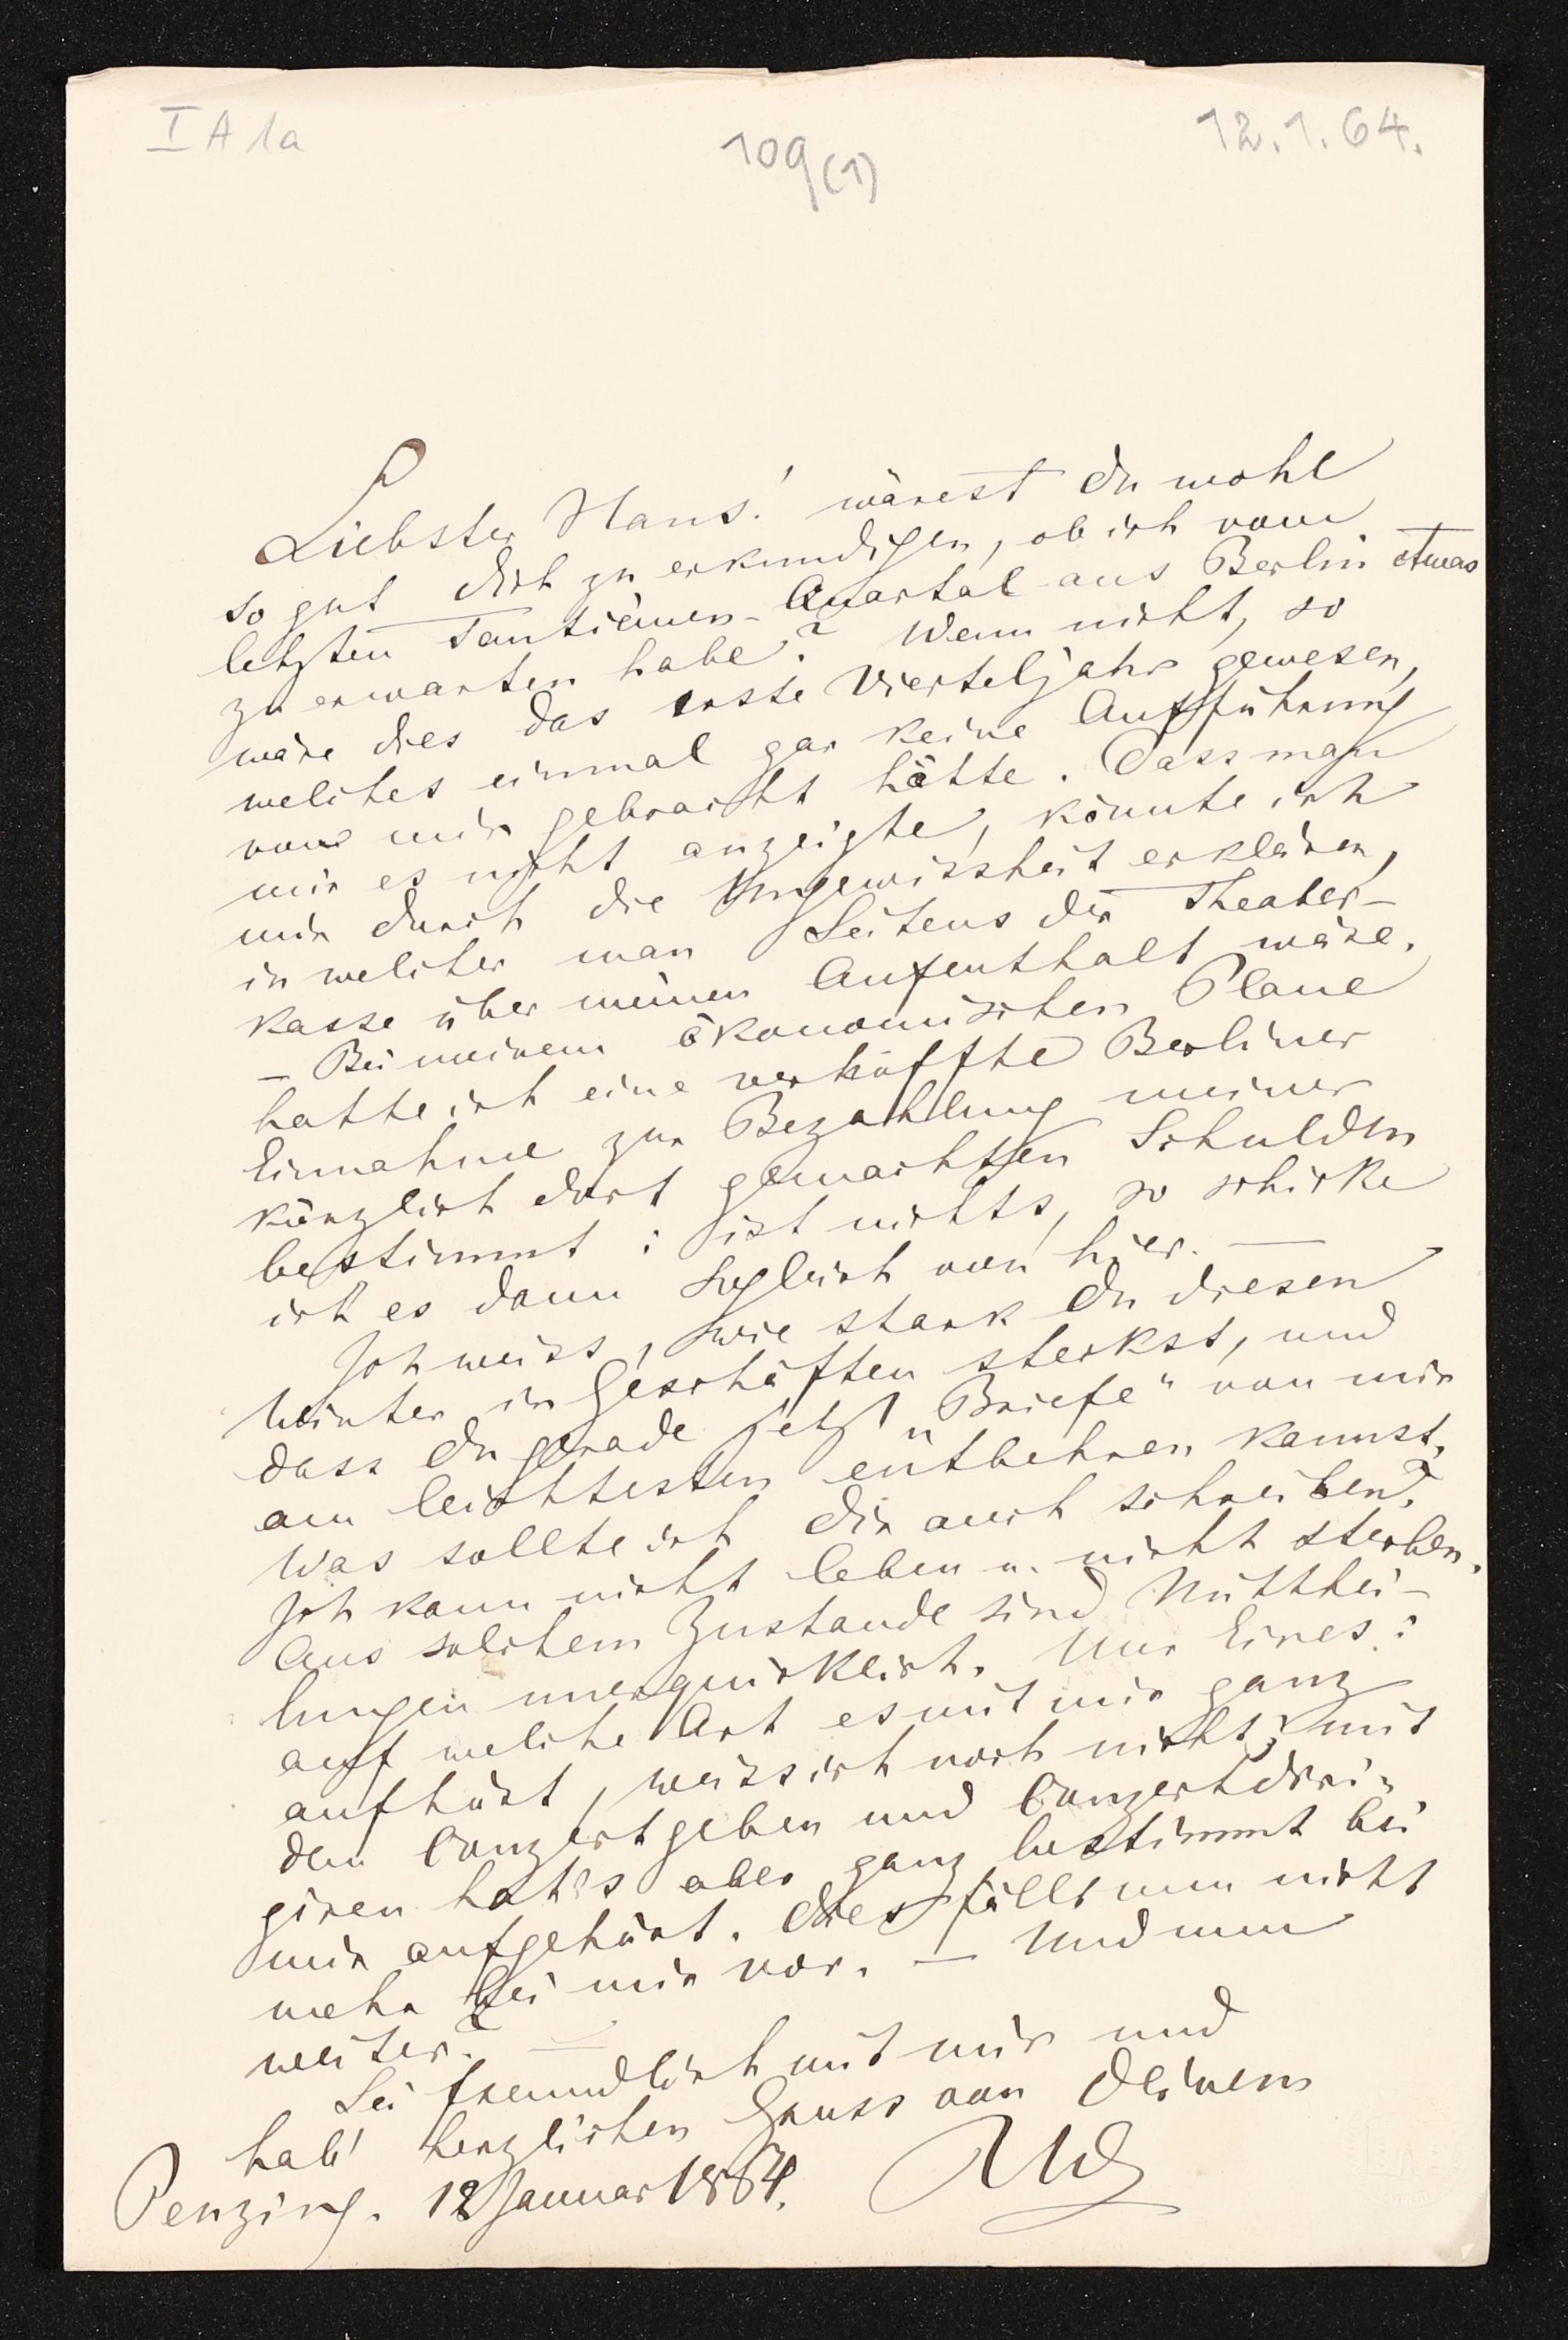 I A 1a
109(1)
12.1.64.
Liebster Hans! wärest Du wohl
so gut Dich zu erkundigen, ob ich vom
letzten Tantièmen-Quartal aus Berlin etwas
zu erwarten habe? Wenn nicht, so
wäre dies das erste Vierteljahr gewesen,
welches einmal gar keine Aufführung
von mir gebracht hätte. Dass man
mir es nicht anzeigte, könnte ich
mir durch die Ungewissheit erklären,
in welcher man Seitens der Theater-
kasse über meinen Aufenthalt wäre.
– Bei meinem ökonomischen Plane
hatte ich eine verhoffte Berliner
Einnahme zur Bezahlung meiner
kürzlich dort gemachten Schulden
bestimmt: ist nichts, so schicke
ich es dann sogleich von hier. —
Ich weiss, wie stark Du diesen
Winter in Geschäften steckst, und
dass Du gerade jetzt „Briefe" von mir
am leichtesten entbehren kannst.
Was sollte ich Dir auch schreiben?
Ich kann nicht leben u. nicht sterben.
Aus solchem Zustande sind Mitthei-
lungen unerquicklich. Nur Eines:
auf welche Art es mit mir ganz
aufhört, weiss ich noch nicht; mit
dem Conzertgeben und Conzertdiri-
giren hat's aber ganz bestimmt bei
mir aufgehört. Dies fällt nun nicht
mehr bei mir vor. — Und nun
weiter? —
Sei freundlich mit mir und
hab' herzlichen Gruss von Deinem
Penzing. 12 Januar 1864. RW